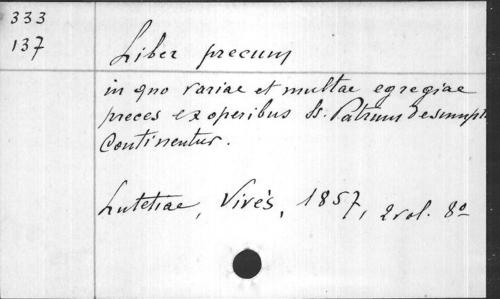 333
137
Liber precum
in quo variae et multae egregiae
preces ex operibus SS. Patrum desumpt
continentur.
Lutetiae, Vivès, 1857, 2 vol. 8º